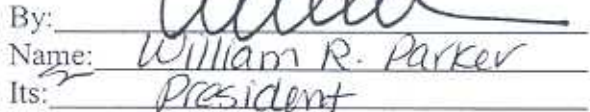 By:
Name: William R. Parker
Its: President